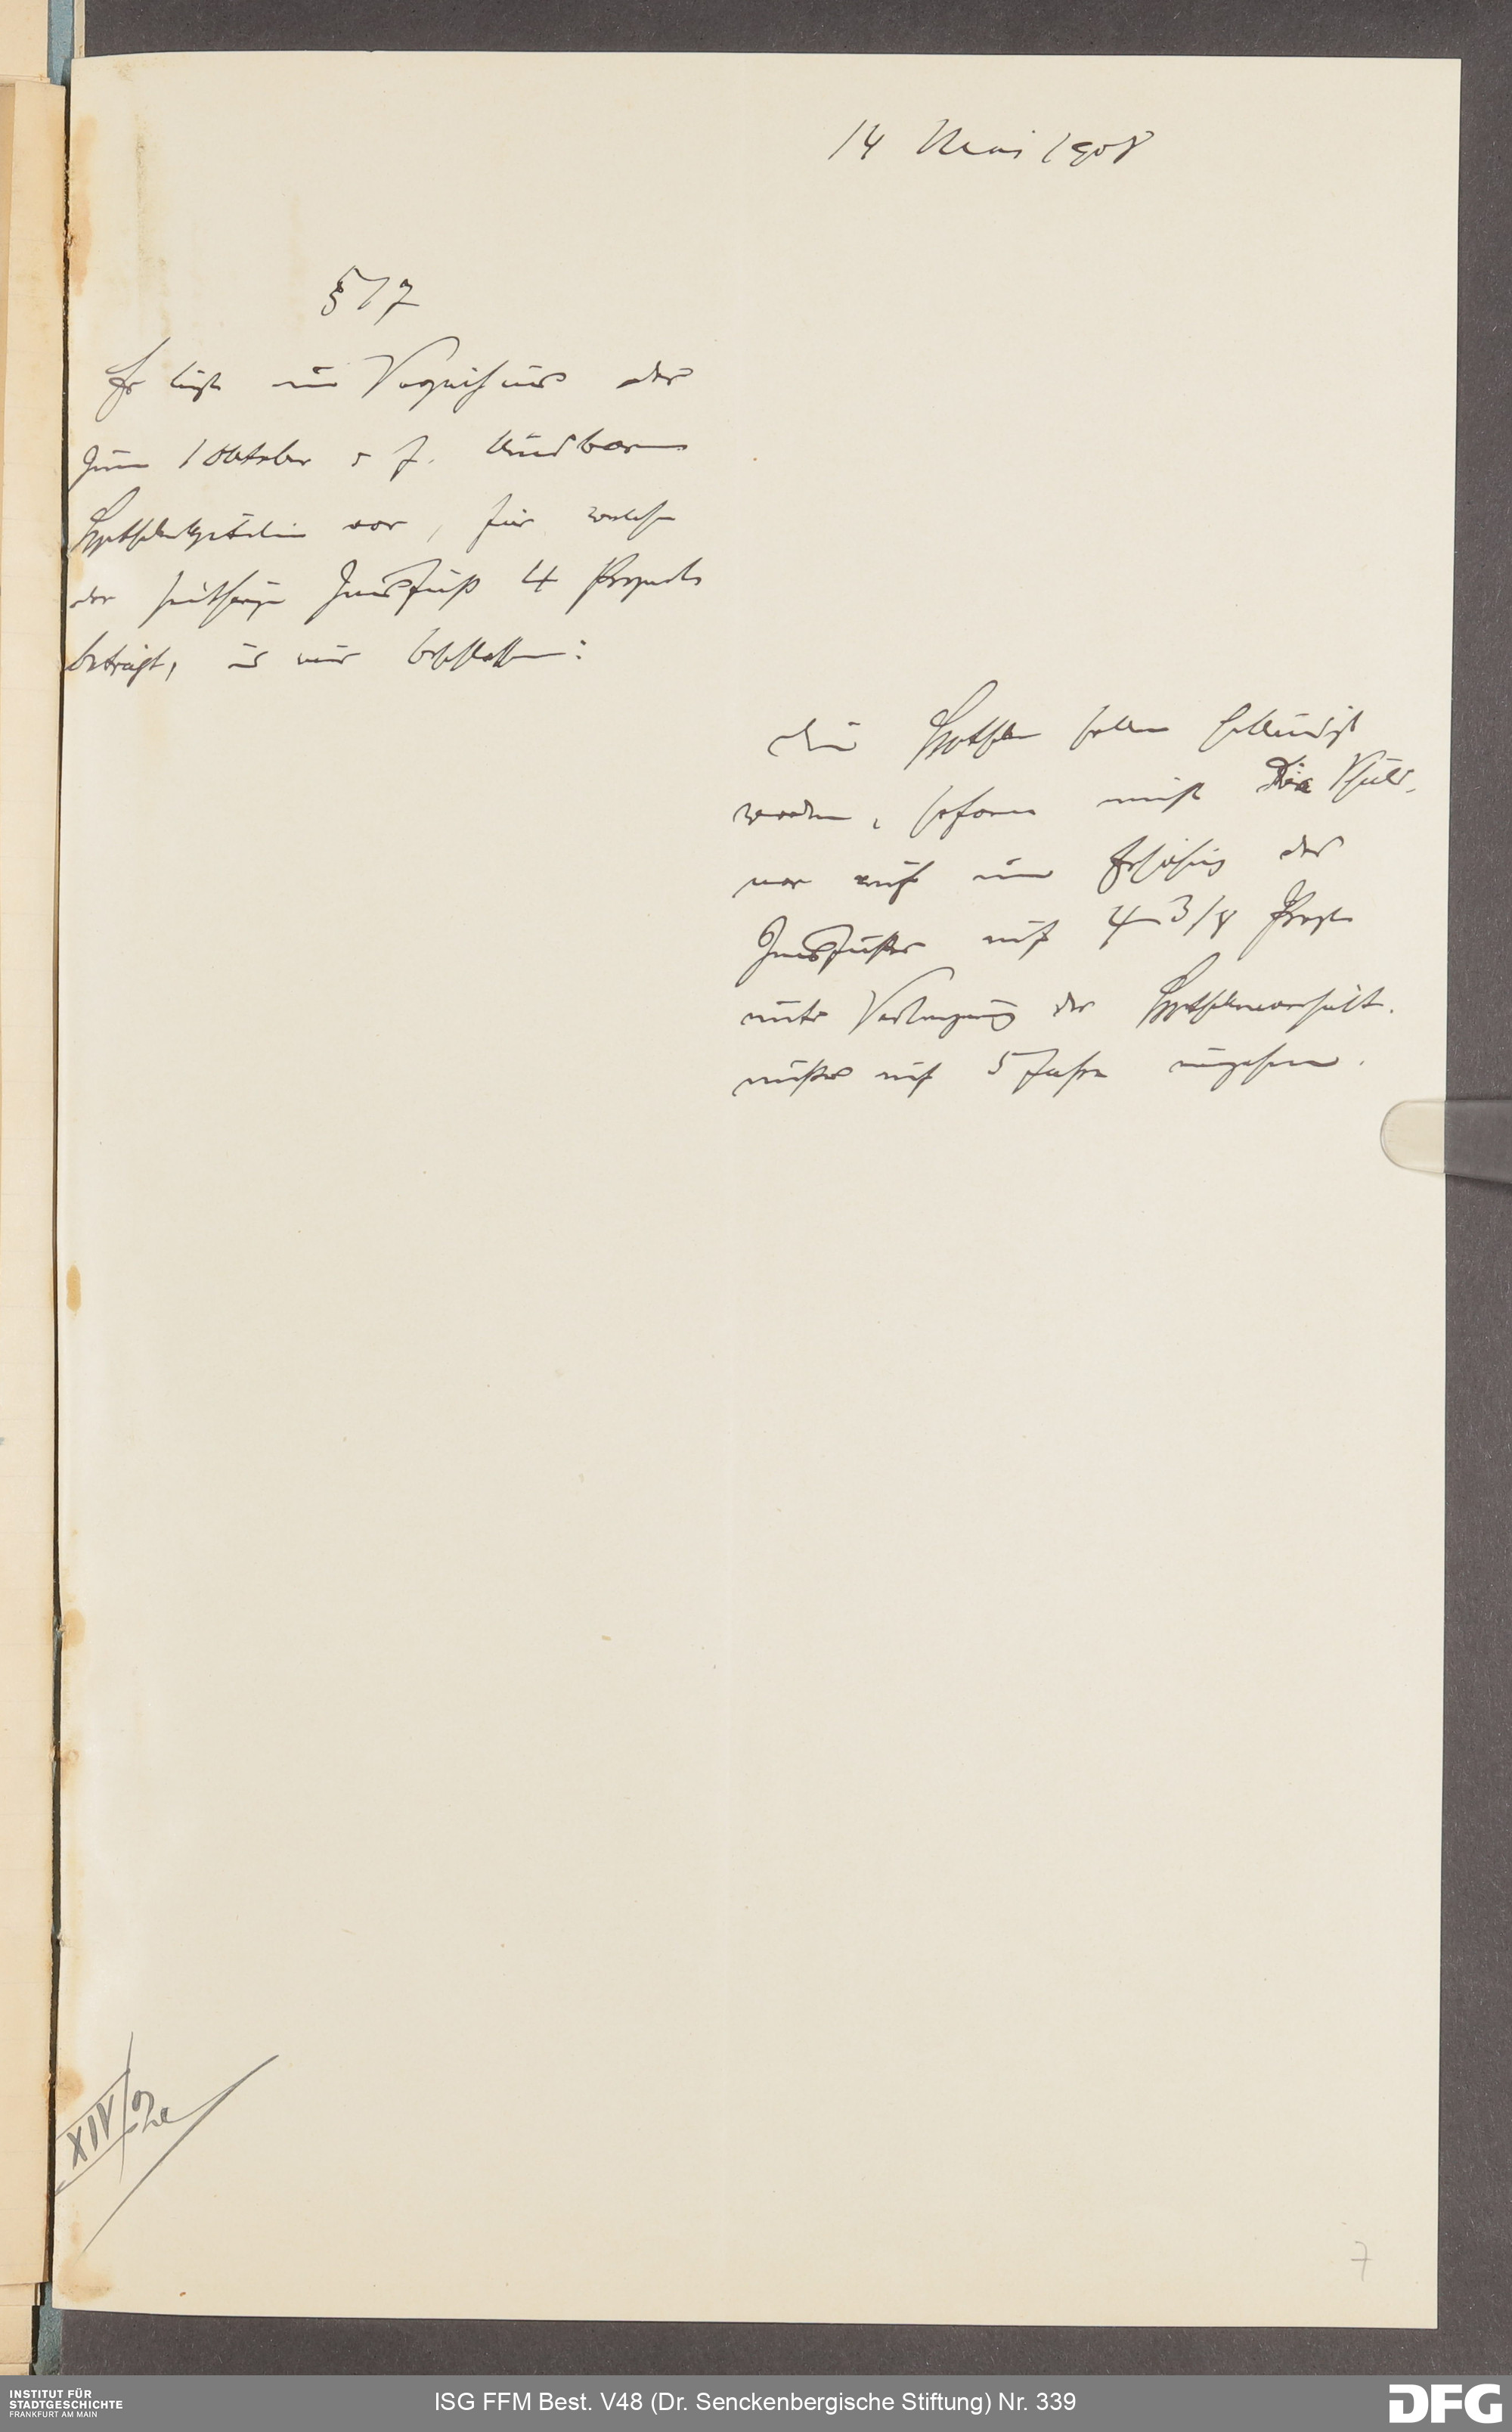 14 Mai 1908
§ 17
Es liegt ein Verzeichniß der
zum 1 Oktober d J. kündbaren
Hypothekkapitalien vor, für welche
der seitherige Zinsfuß 4 Prozent
beträgt, es wird beschlossen:
die Hypotheken sollen gekündigt
werden, sofern nicht die Schuld-
ner auf eine Erhöhung des
Zinsfußes auf 4 3/8 Prozent
unter Verlängerung des Hypothekenverhält-
nisses auf 5 Jahre eingehen.
XIV/2a
7
INSTITUT FÜR
STADTGESCHICHTE
FRANKFURT AM MAIN
ISG FFM Best. V48 (Dr. Senckenbergische Stiftung) Nr. 339
DFG